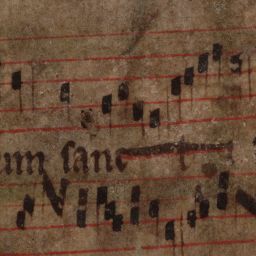 um sanc